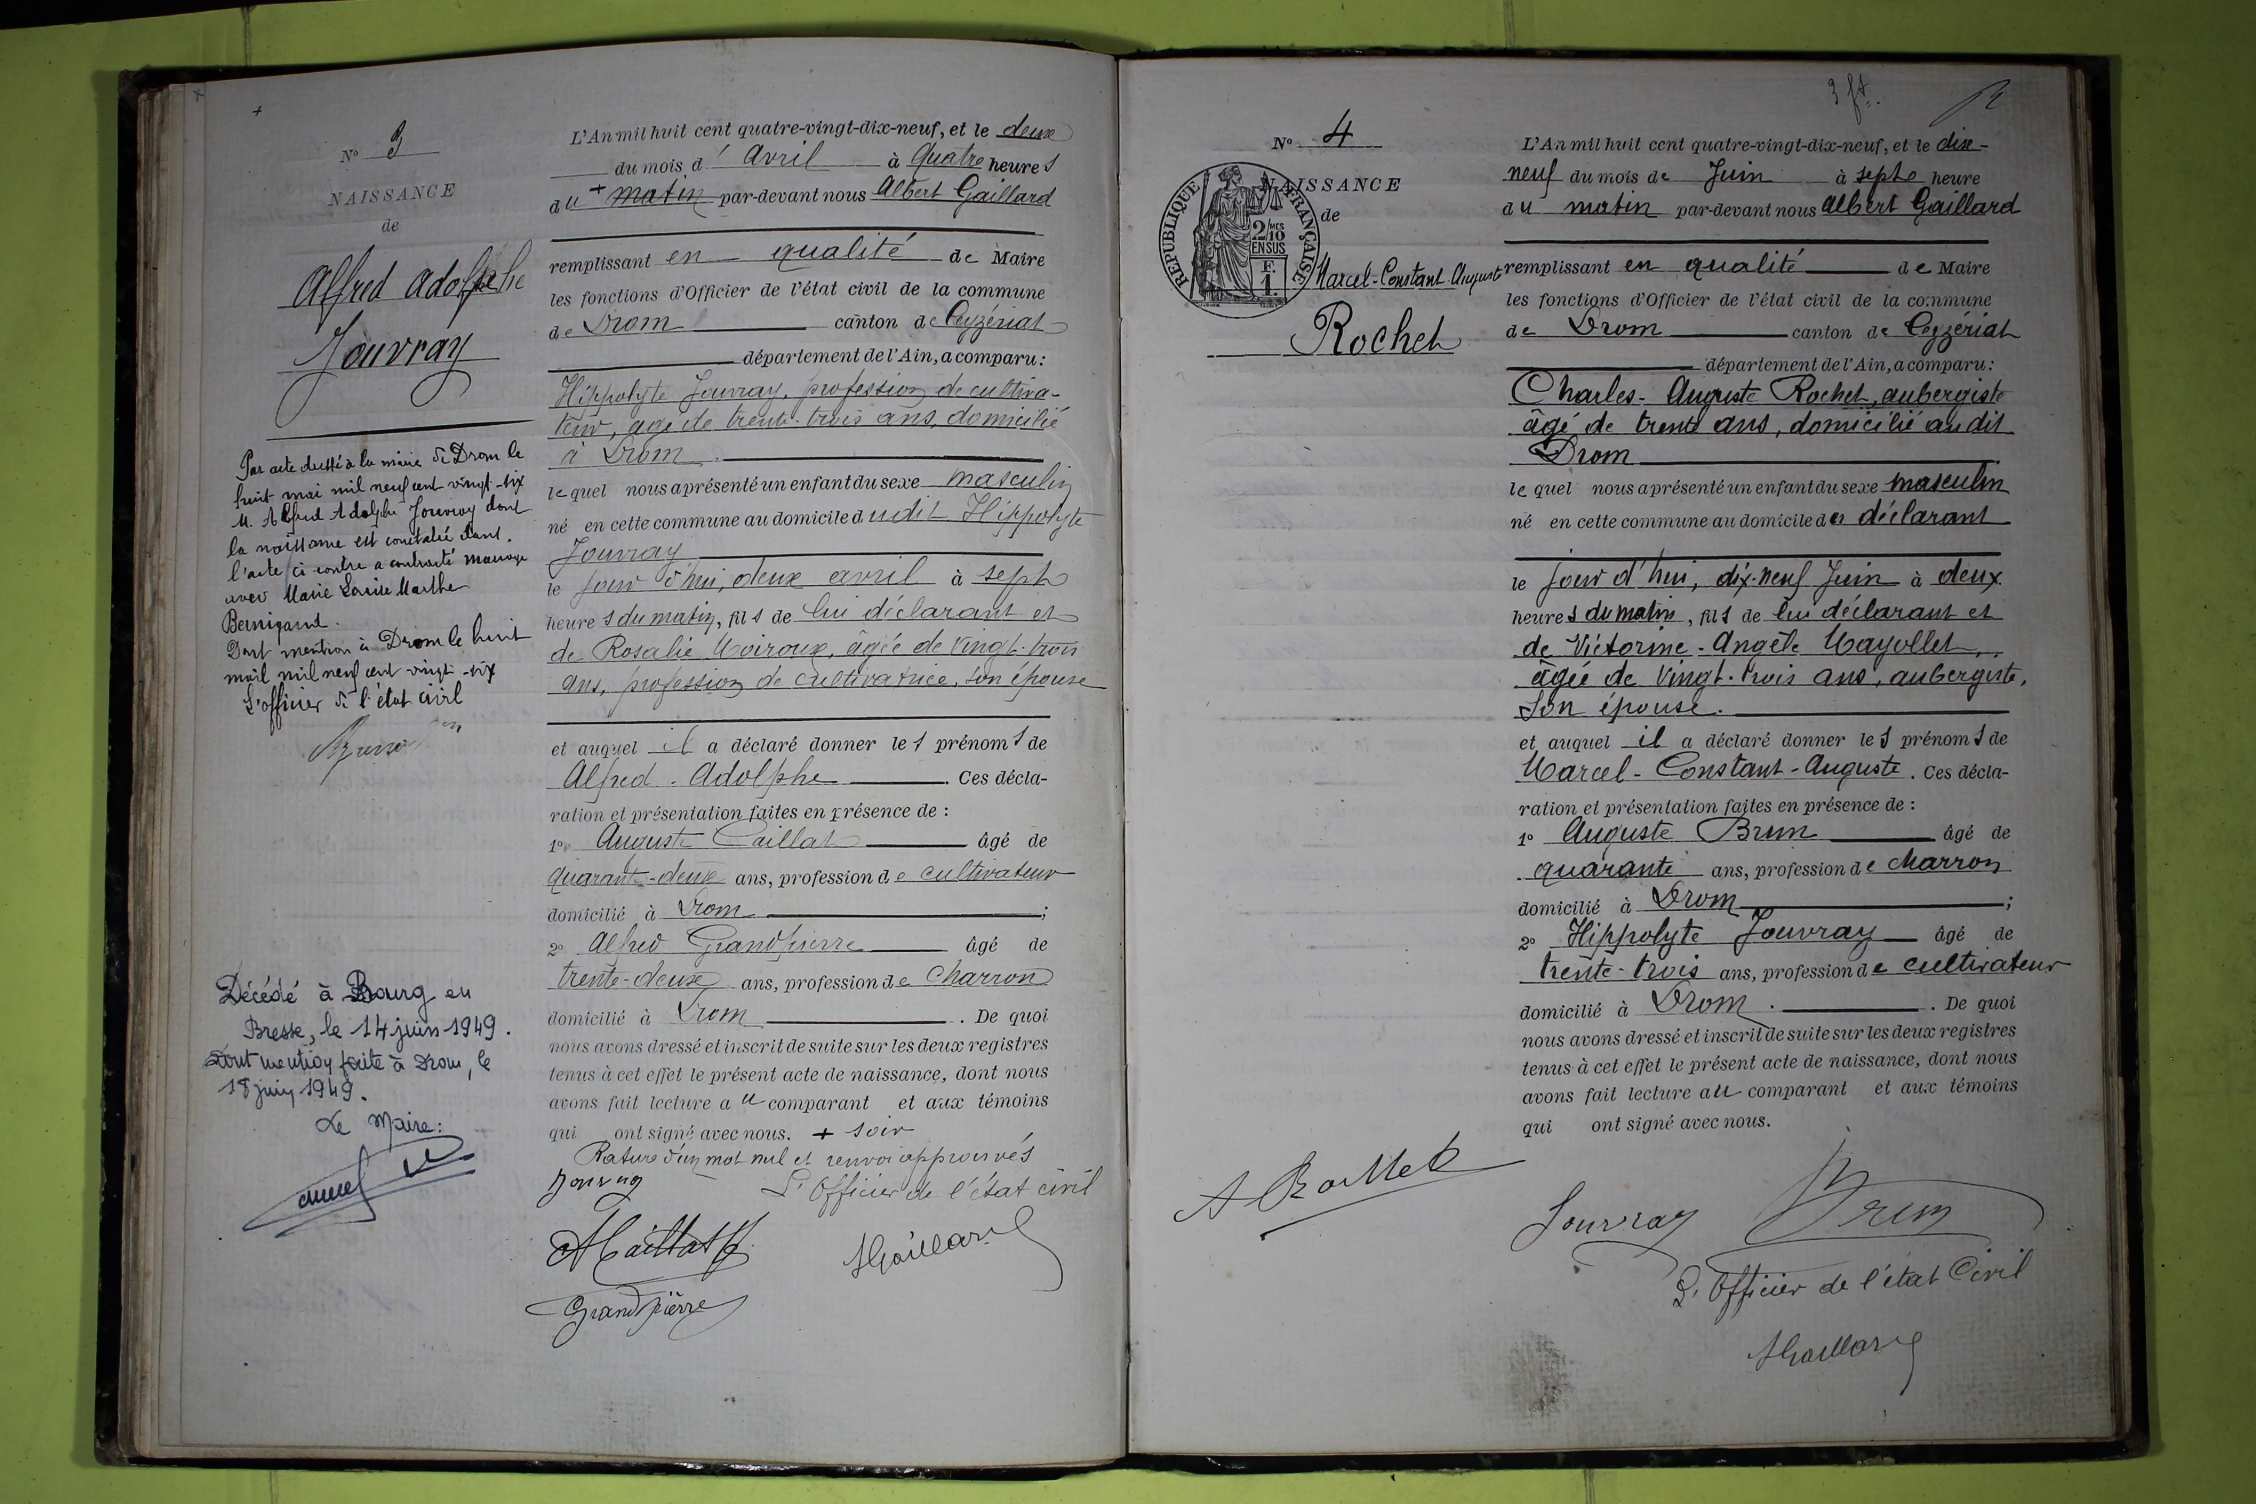 N° 3
NAISSANCE
de
Alfred Adolphe
Jouvray
Par acte dressé à la mairie de Drom le
huit mai mil neuf cent vingt-six
M. Alfred Adolphe Jouvray dont
la naissance est constatée dans
l'acte ci contre a contracté mariage
avec Marie Louise Marthe
Dont mention à Drom le huit
mail mil neuf cent vingt-six
L'officier de l'état civil
Décédé à Bourg en
Bresse, le 14 juin 1949.
Dont mention faite à Drom, le
18 juin 1949.
Le Maire:
L'An mil huit cent quatre-vingt-dix-neuf, et le deux
du mois d'Avril à quatre heures
du + matin par-devant nous Albert Gaillard
remplissant en qualité de Maire
les fonctions d'Officier de l'état civil de la commune
de Drom canton de Ceyzériat
département de l'Ain, a comparu:
Hippolyte Jouvray, profession de cultiva-
teur, age de trente-trois ans, domicilié
à Drom.
lequel nous a présenté un enfant du sexe masculin
né en cette commune au domicile dudit Hippolyte
Jouvray
le jour d'hui, deux avril à sept
heures du matin, fils de lui déclarant et
de Rosalie Moiroux, âgée de vingt-trois
ans, profession de cultivatrice, son épouse
et auquel il a déclaré donner les prénoms de
Alfred-Adolphe. Ces décla-
ration et présentation faites en présence de :
1° Auguste Caillat âgé de
quarante-deux ans, profession de cultivateur
domicilié à Drom ;
2° Alfred Grandpierre âgé de
trente-deux ans, profession de charron
domicilié à Drom. De quoi
nous avons dressé et inscrit de suite sur les deux registres
tenus à cet effet le présent acte de naissance, dont nous
avons fait lecture au comparant et aux témoins
qui ont signé avec nous. + soir
Rature d'un mot nul et renvoi approuvés
Jouvray L'Officier de l'état civil
A Caillat
A Gaillard
Grandpierre
3 ft.
N° 4
NAISSANCE
de
REPUBLIQUE FRANÇAISE
2 MES
10
EN SUS
F.
1.
Marcel-Constant Auguste
Rochet
L'An mil huit cent quatre-vingt-dix-neuf, et le dix-
neuf du mois de Juin à sept heure
du matin par-devant nous Albert Gaillard
remplissant en qualité de Maire
les fonctions d'Officier de l'état civil de la commune
de Drom canton de Ceyzériat
département de l'Ain, a comparu:
Charles-Auguste Rochet, aubergiste
âgé de trente ans, domicilié audit
Drom
lequel nous a présenté un enfant du sexe masculin
né en cette commune au domicile du déclarant
le jour d'hui, dix-neuf Juin à deux
heures du matin, fils de lui déclarant et
de Victorine-Angèle Mayollet,
âgée de vingt-trois ans, aubergiste,
son épouse.
et auquel il a déclaré donner les prénoms de
Marcel-Constant-Auguste. Ces décla-
ration et présentation faites en présence de :
1° Auguste Brun âgé de
quarante ans, profession de charron
domicilié à Drom ;
2° Hippolyte Jouvray âgé de
trente-trois ans, profession de cultivateur
domicilié à Drom. De quoi
nous avons dressé et inscrit de suite sur les deux registres
tenus à cet effet le présent acte de naissance, dont nous
avons fait lecture au comparant et aux témoins
qui ont signé avec nous.
Jouvray Brun
L'Officier de l'état Civil
A Gaillard